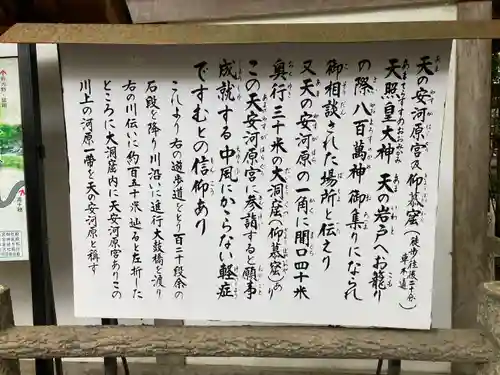 天の安河原宮及仰慕窟(徒歩往復二十分。車不通)
天照皇大神 天の岩戸へお籠り
の際、八百萬神御集りになられ
御相談された場所と伝えり
又天の安河原の一角に間口四十米
奥行三十米の大洞窟(仰慕窟)あり
この天安河原宮に参詣すると願事
成就する中風にかゝらない軽症
ですむとの信仰あり
これより右の遊歩道をとり百二十段余の
石段を降り川沿いに進行大鼓橋を渡り
右の川伝いに約百五十米辿ると左折した
ところに大洞窟内に天安河原宮ありこの
川上の河原一帯を天の安河原と稱す